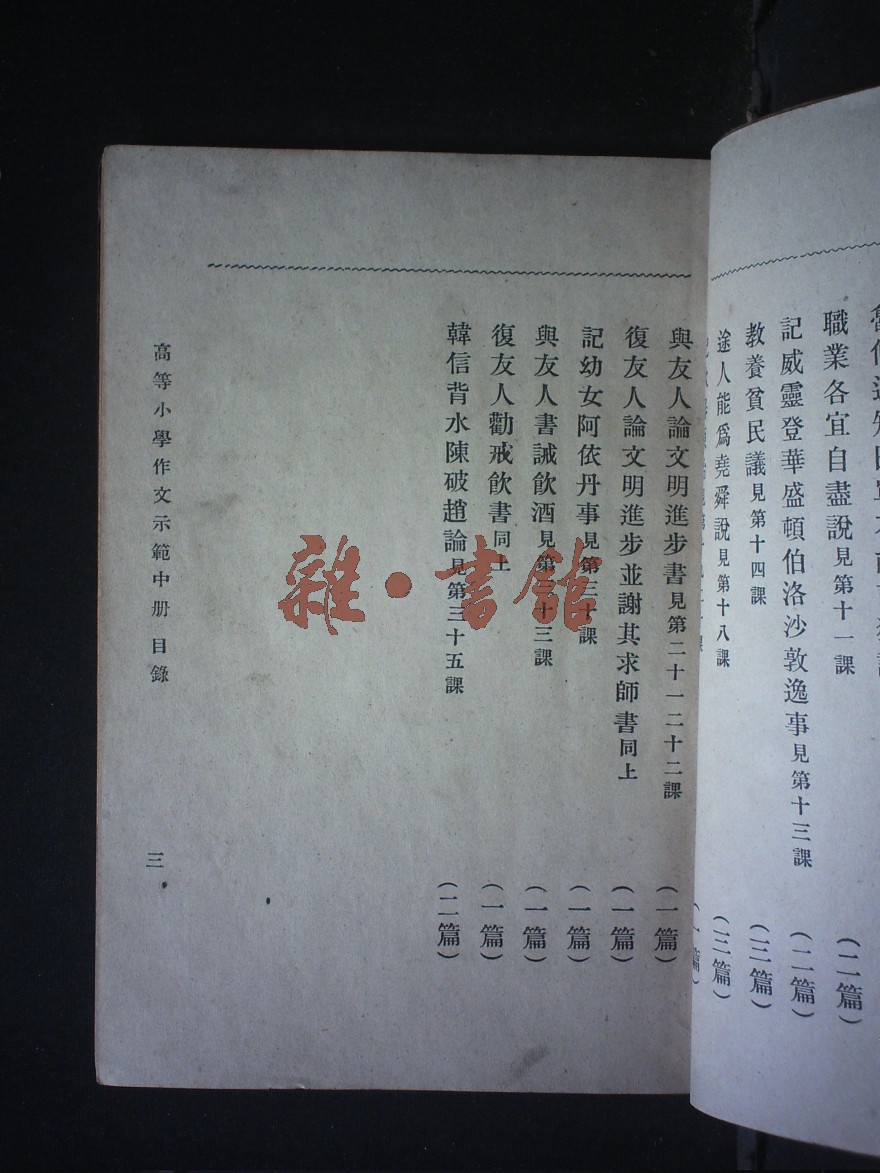 職業各宜自盡說見第十一課
(二篇)
記威靈登華盛頓伯洛沙敦逸事見第十三課
(二篇)
教養貧民議見第十四課
(三篇)
途人能爲堯舜說見第十八課
(三篇)
與友人論文明進步書見第二十一二十二課
(一篇)
復友人論文明進步並謝其求師書同上
(一篇)
記幼女阿依丹事見第三十課
(一篇)
與友人書誡飲酒見第三十三課
(一篇)
復友人勸戒飲書同上
(一篇)
韓信背水陳破趙論見第三十五課
(二篇)
高等小學作文示範中册 目錄
三
雜·書館